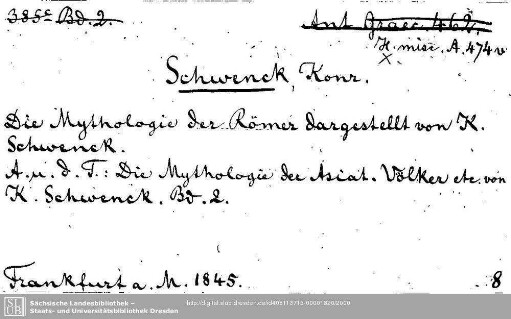 385e Bd. 2.
Ant. graec. 462.
H. misc. A. 474 v
X
Schwenck, Konr.
Die Mythologie der Römer dargestellt von K.
Schwenck.
A. u. d. T.: Die Mythologie der Asiat. Völker etc. von
K. Schwenck. Bd. 2.
Frankfurt a. M. 1845.
8
SLUB
Sächsische Landesbibliothek –
Staats- und Universitätsbibliothek Dresden